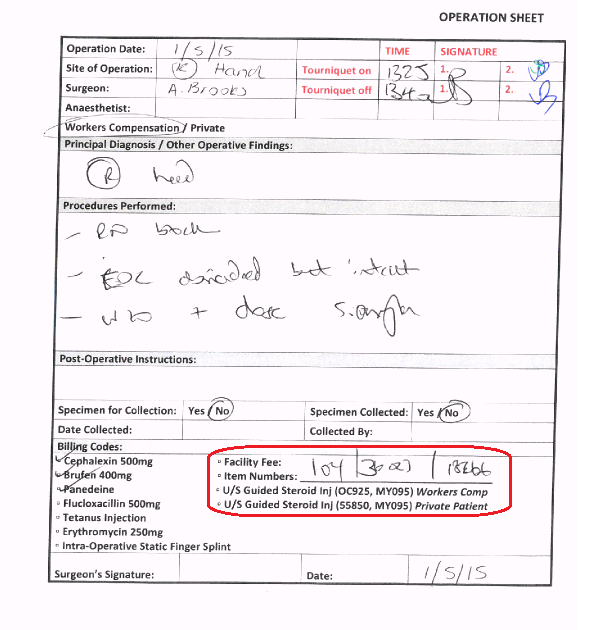 OPERATION SHEET
Operation Date: 1/5/15 TIME SIGNATURE
Site of Operation: R Hand Tourniquet on 1325 1. 2.
Surgeon: A. Brooks Tourniquet off 1. 2.
Anaesthetist:
Workers Compensation / Private
Principal Diagnosis / Other Operative Findings:
R
Procedures Performed:
–
– EDC but intact
– +
Post-Operative Instructions:
Specimen for Collection: Yes / No Specimen Collected: Yes / No
Date Collected: Collected By:
Billing Codes:
Cephalexin 500mg
Brufen 400mg
Panedeine
Flucloxacillin 500mg
Tetanus Injection
Erythromycin 250mg
Intra-Operative Static Finger Splint
Facility Fee:
Item Numbers: 104
U/S Guided Steroid Inj (OC925, MY095) Workers Comp
U/S Guided Steroid Inj (55850, MY095) Private Patient
Surgeon's Signature: Date: 1/5/15